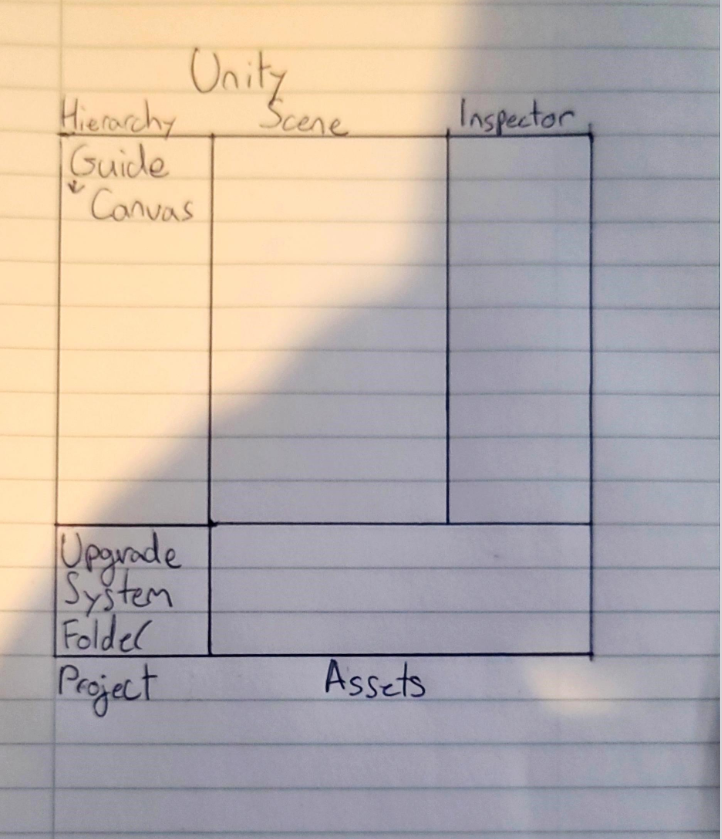 Unity
Hierarchy Scene Inspector
Guide
Canvas
Upgrade
System
Folder
Project Assets